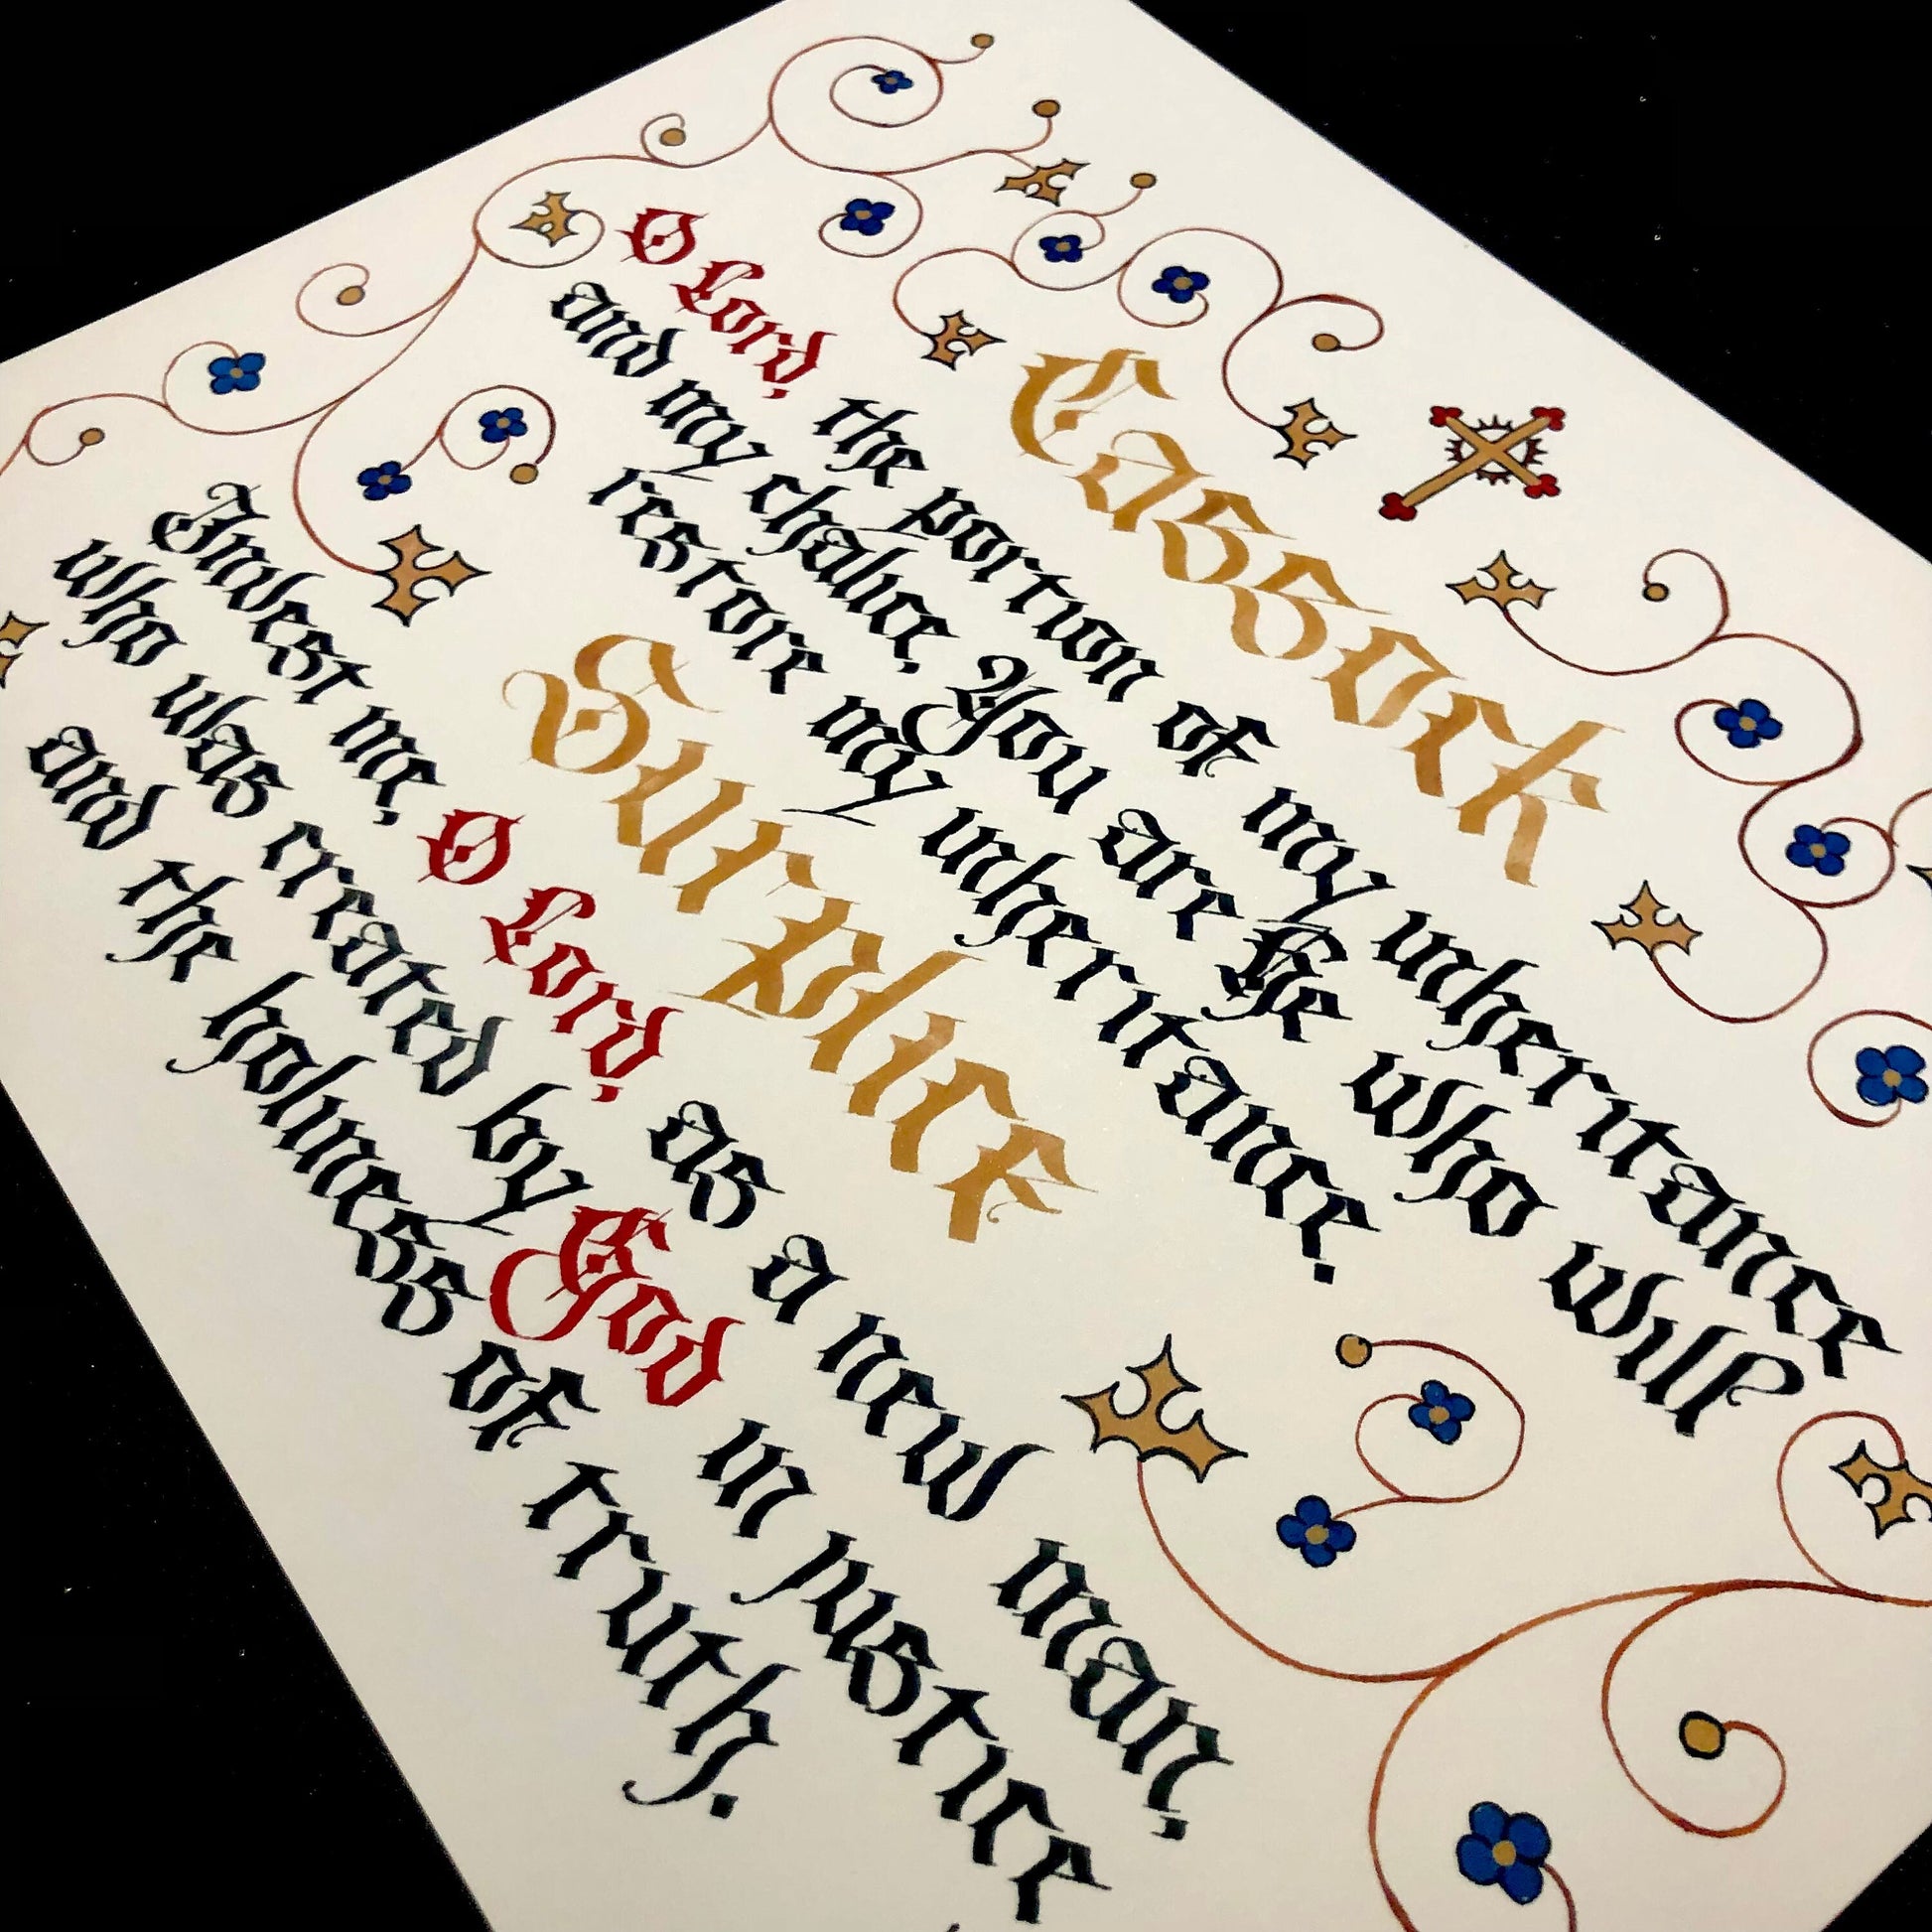 Cassock
O Lord, the portion of my inheritance
and my chalice, You are He who will
restore my inheritance.
Surplice
Invest me, O Lord, as a new man,
who was created by God in justice
and the holiness of truth.